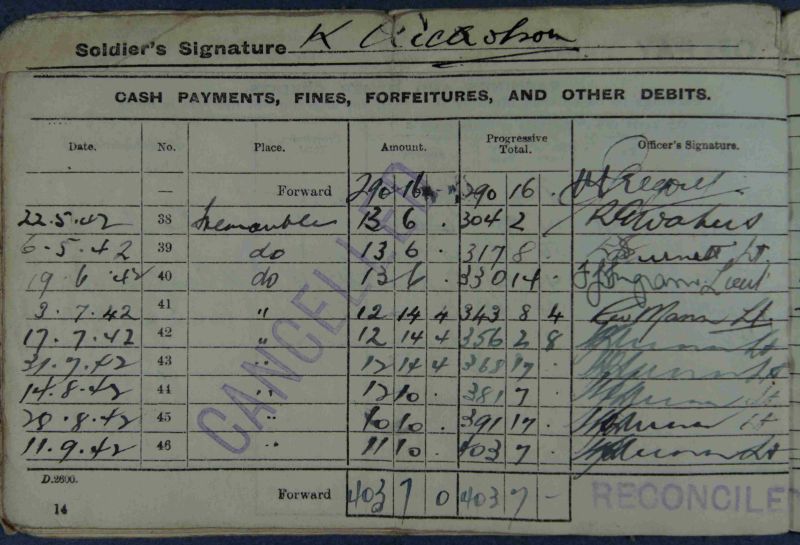 Soldier's Signature K Nicholson
CASH PAYMENTS, FINES, FORFEITURES, AND OTHER DEBITS.
Date. No. Place. Amount. Progressive Total. Officer's Signature.
— Forward 290 16 290 16 .
22.5.42 38 Fremantle 13 6 . 304 2
6.5.42 39 do 13 6 . 317 8 . Lt.
19.6.42 40 do 13 6 330 14 . Ingram Lieut
3.7.42 41 " 12 14 4 343 8 4 Mann Lt.
17.7.42 42 " 12 14 4 356 2 8 Lt
31.7.42 43 " 12 14 4 368 17 . Lt
14.8.42 44 " 12 10 . 381 7 . Lt
28.8.42 45 " 10 10 . 391 17 . Lt
11.9.42 46 " 11 10 . 403 7 . Lt
CANCELLED
D.2600. Forward 403 7 0 403 7 —
14
RECONCILED